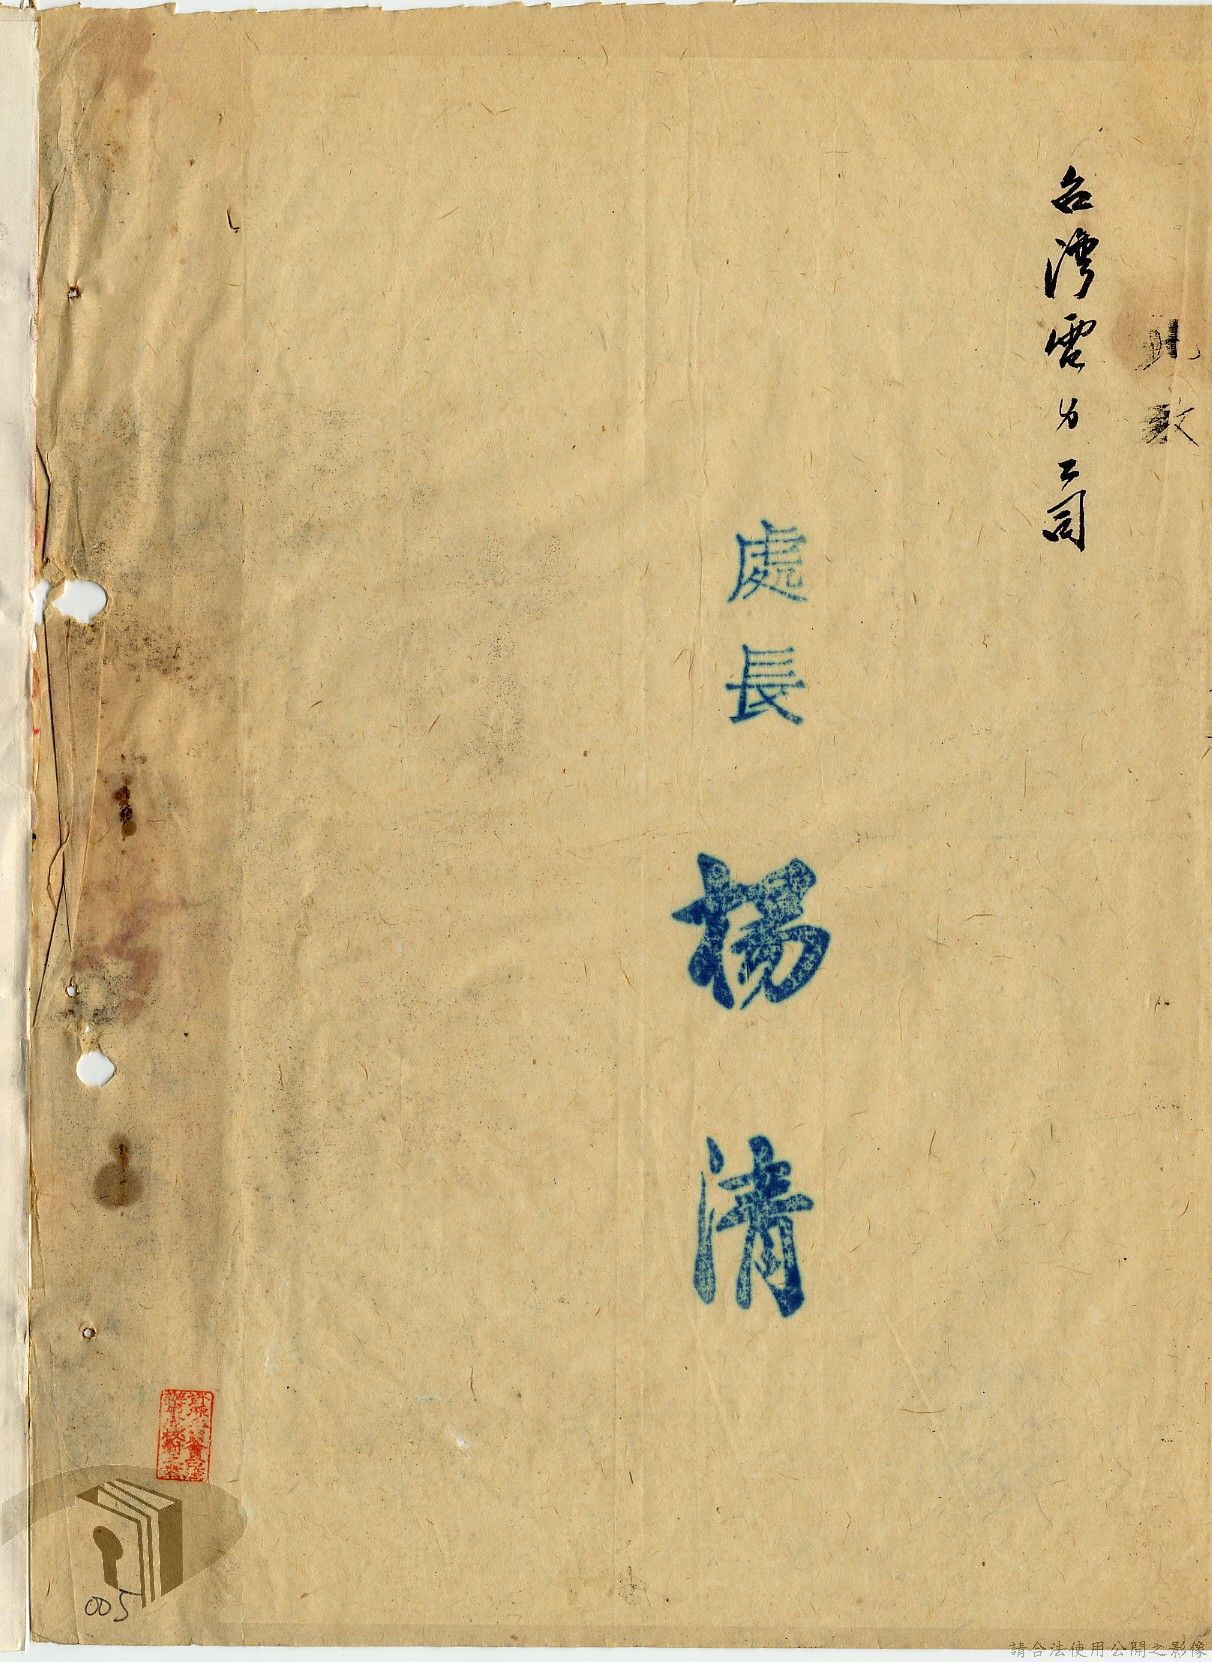 此致
台灣電力公司
處長 楊清
005
請合法使用公開之影像